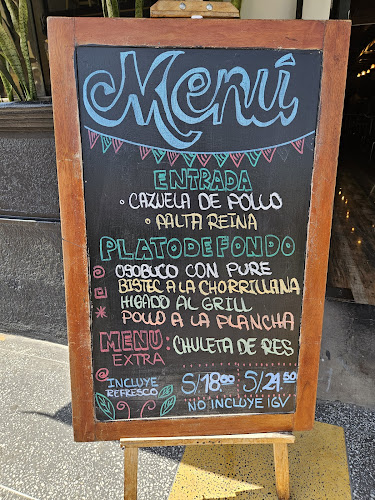 Menú
ENTRADA
• CAZUELA DE POLLO
• PALTA REINA
PLATO DE FONDO
OSOBUCO CON PURE
BISTEC A LA CHORRILLANA
HIGADO AL GRILL
POLLO A LA PLANCHA
MENU EXTRA: CHULETA DE RES
INCLUYE REFRESCO
S/18.00 S/21.50
NO INCLUYE IGV